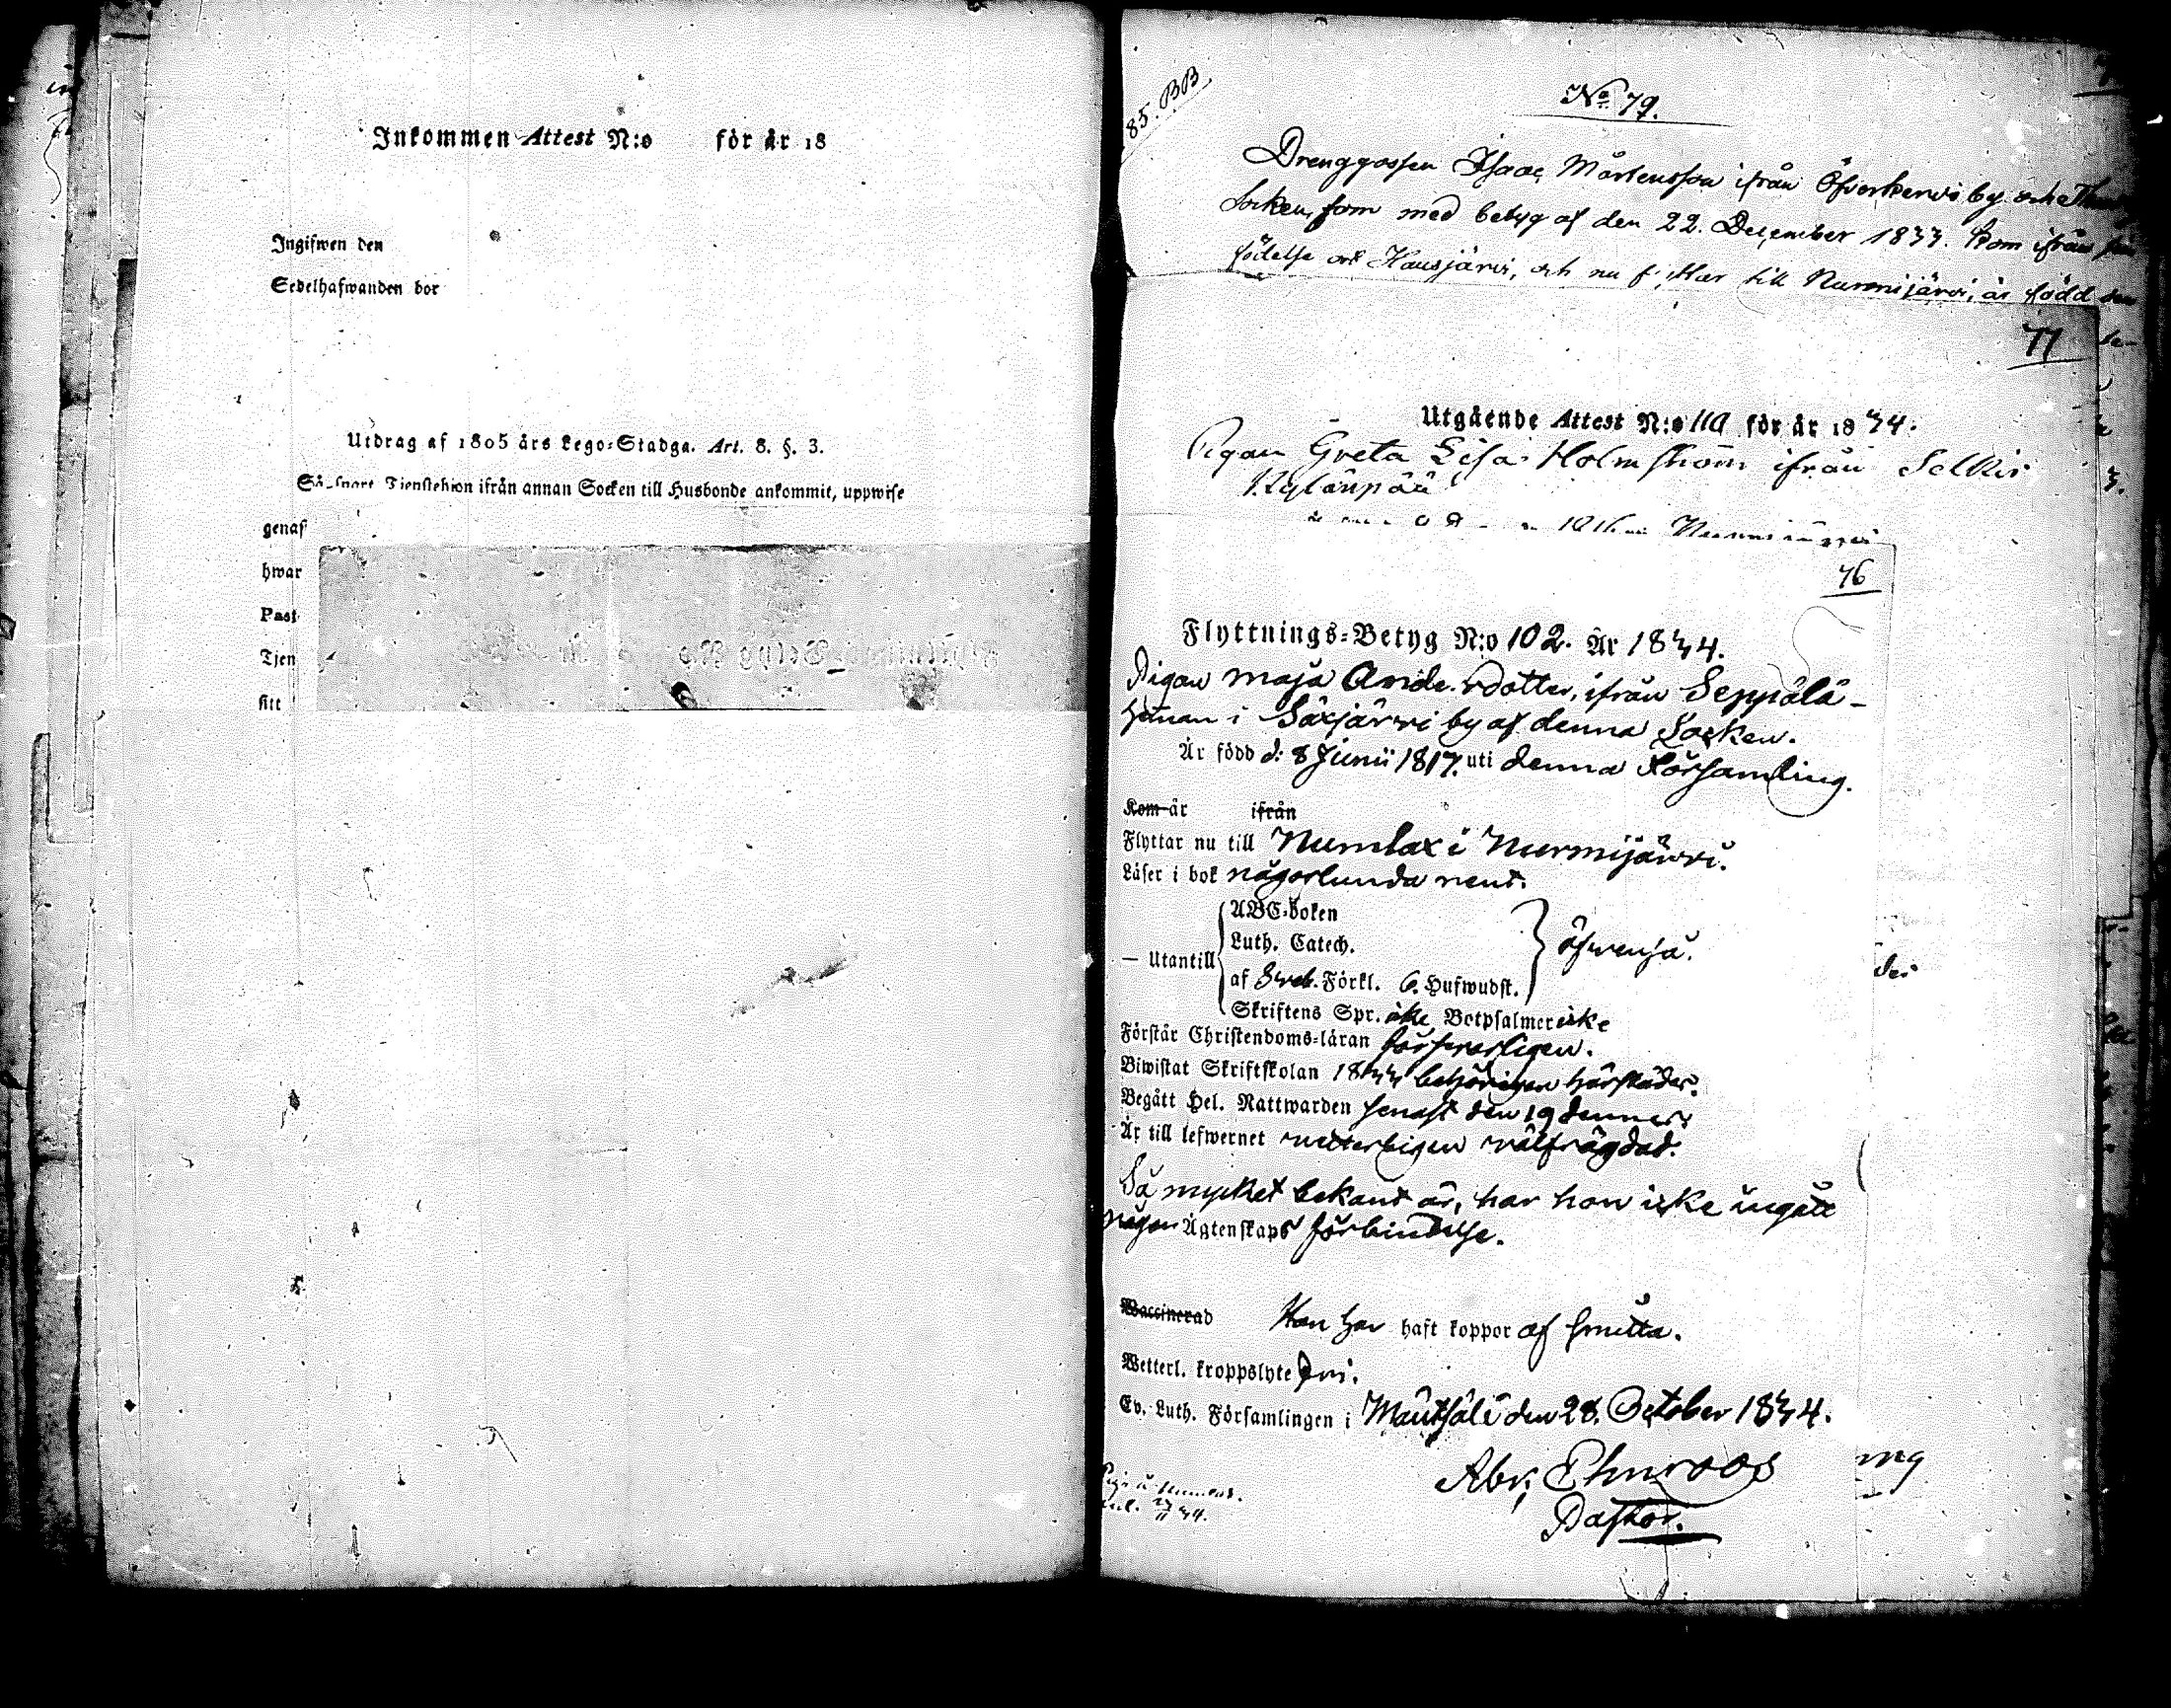 Inkommen Attest N:o för år 18
Ingifwen den
Sedelhafwanden bor
Utdrag af 1805 års Lego=Stadga. Art. 8. §. 3.
Så snart Tjenstehjon ifrån annan Socken till Husbonde ankommit, uppwise
genas
hwar
Past
Tjen
sitt
85. BB.
No 79.
Drenggossen Isaac Mårtensson ifrån Öfverkervi by och
Socken, som med betyg af den 22. December 1833. kom ifrån
födelse ort Hausjärvi, och nu flyttar till Nurmijärvi, är född den
77
Utgående Attest N:o 110 för år 1834.
Pigan Greta Lisa Holmström ifrån Selkis
Kylänpää
Nurmijärvi
76
Flyttnings=Betyg N:o 102. År 1834.
Pigan Maja Andersdotter, ifrån Seppälä-
heman i Säxjärvi by af denna Socken.
Är född d: 8 Junii 1817. uti denna Församling.
Kom år ifrån
Flyttar nu till Numlax i Nurmijärvi.
Läser i bok någorlunda rent.
ABC=boken
Luth. Catech.
— Utantill öfvenså.
af Sveb. Förkl. 6. Hufwudst.
Skriftens Spr. icke Botpsalmer icke
Förstår Christendoms=läran försvarligen.
Biwistat Skriftskolan 1833 behörigen härstädes.
Begått Hel. Nattwarden senast den 19 dennes.
Är till lefwernet vetterligen välfrägdad.
Så mycket bekant är, har hon icke ingått
någon Ägtenskaps förbindelse.
Waccinerad Hon har haft koppor af smitta.
Wetterl. kroppslyte fri.
Ev. Luth. Församlingen i Mäntsälä den 28. October 1834.
Abr. Ehnroos
Pastor.